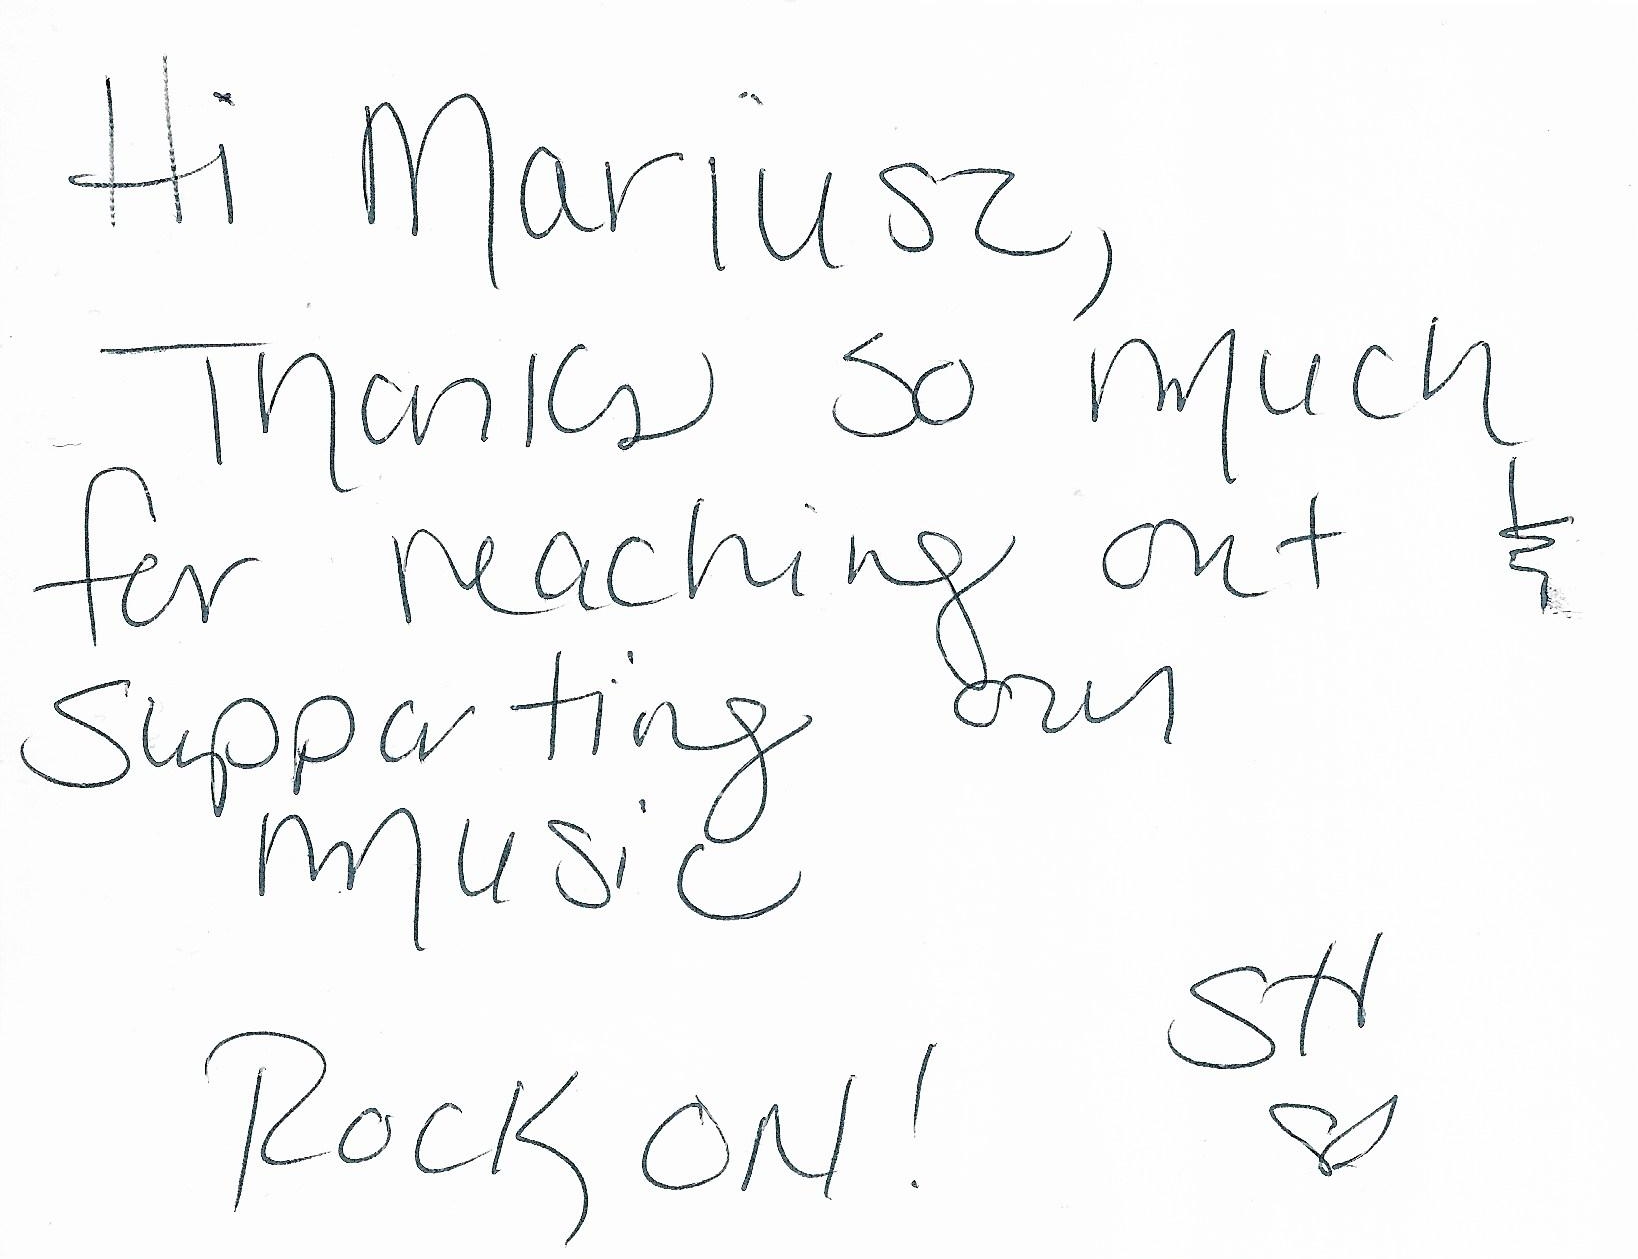 Hi Mariusz,
Thanks so much
for reaching out &
supporting our
music
SH
ROCK ON!